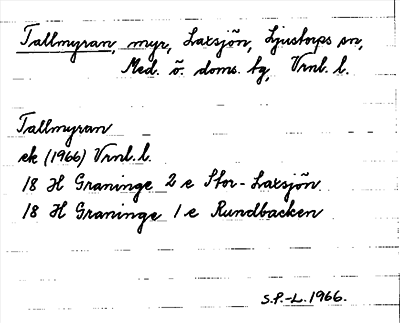 Tallmyran, myr, Laxsjön, Ljustorps sn,
Med. ö. doms. tg, Vrnl. l.
Tallmyran
ek (1966) Vrnl. l.
18 H Graninge 2 e Stor-Laxsjön
18 H Graninge 1 e Rundbacken
S.P.-L. 1966.